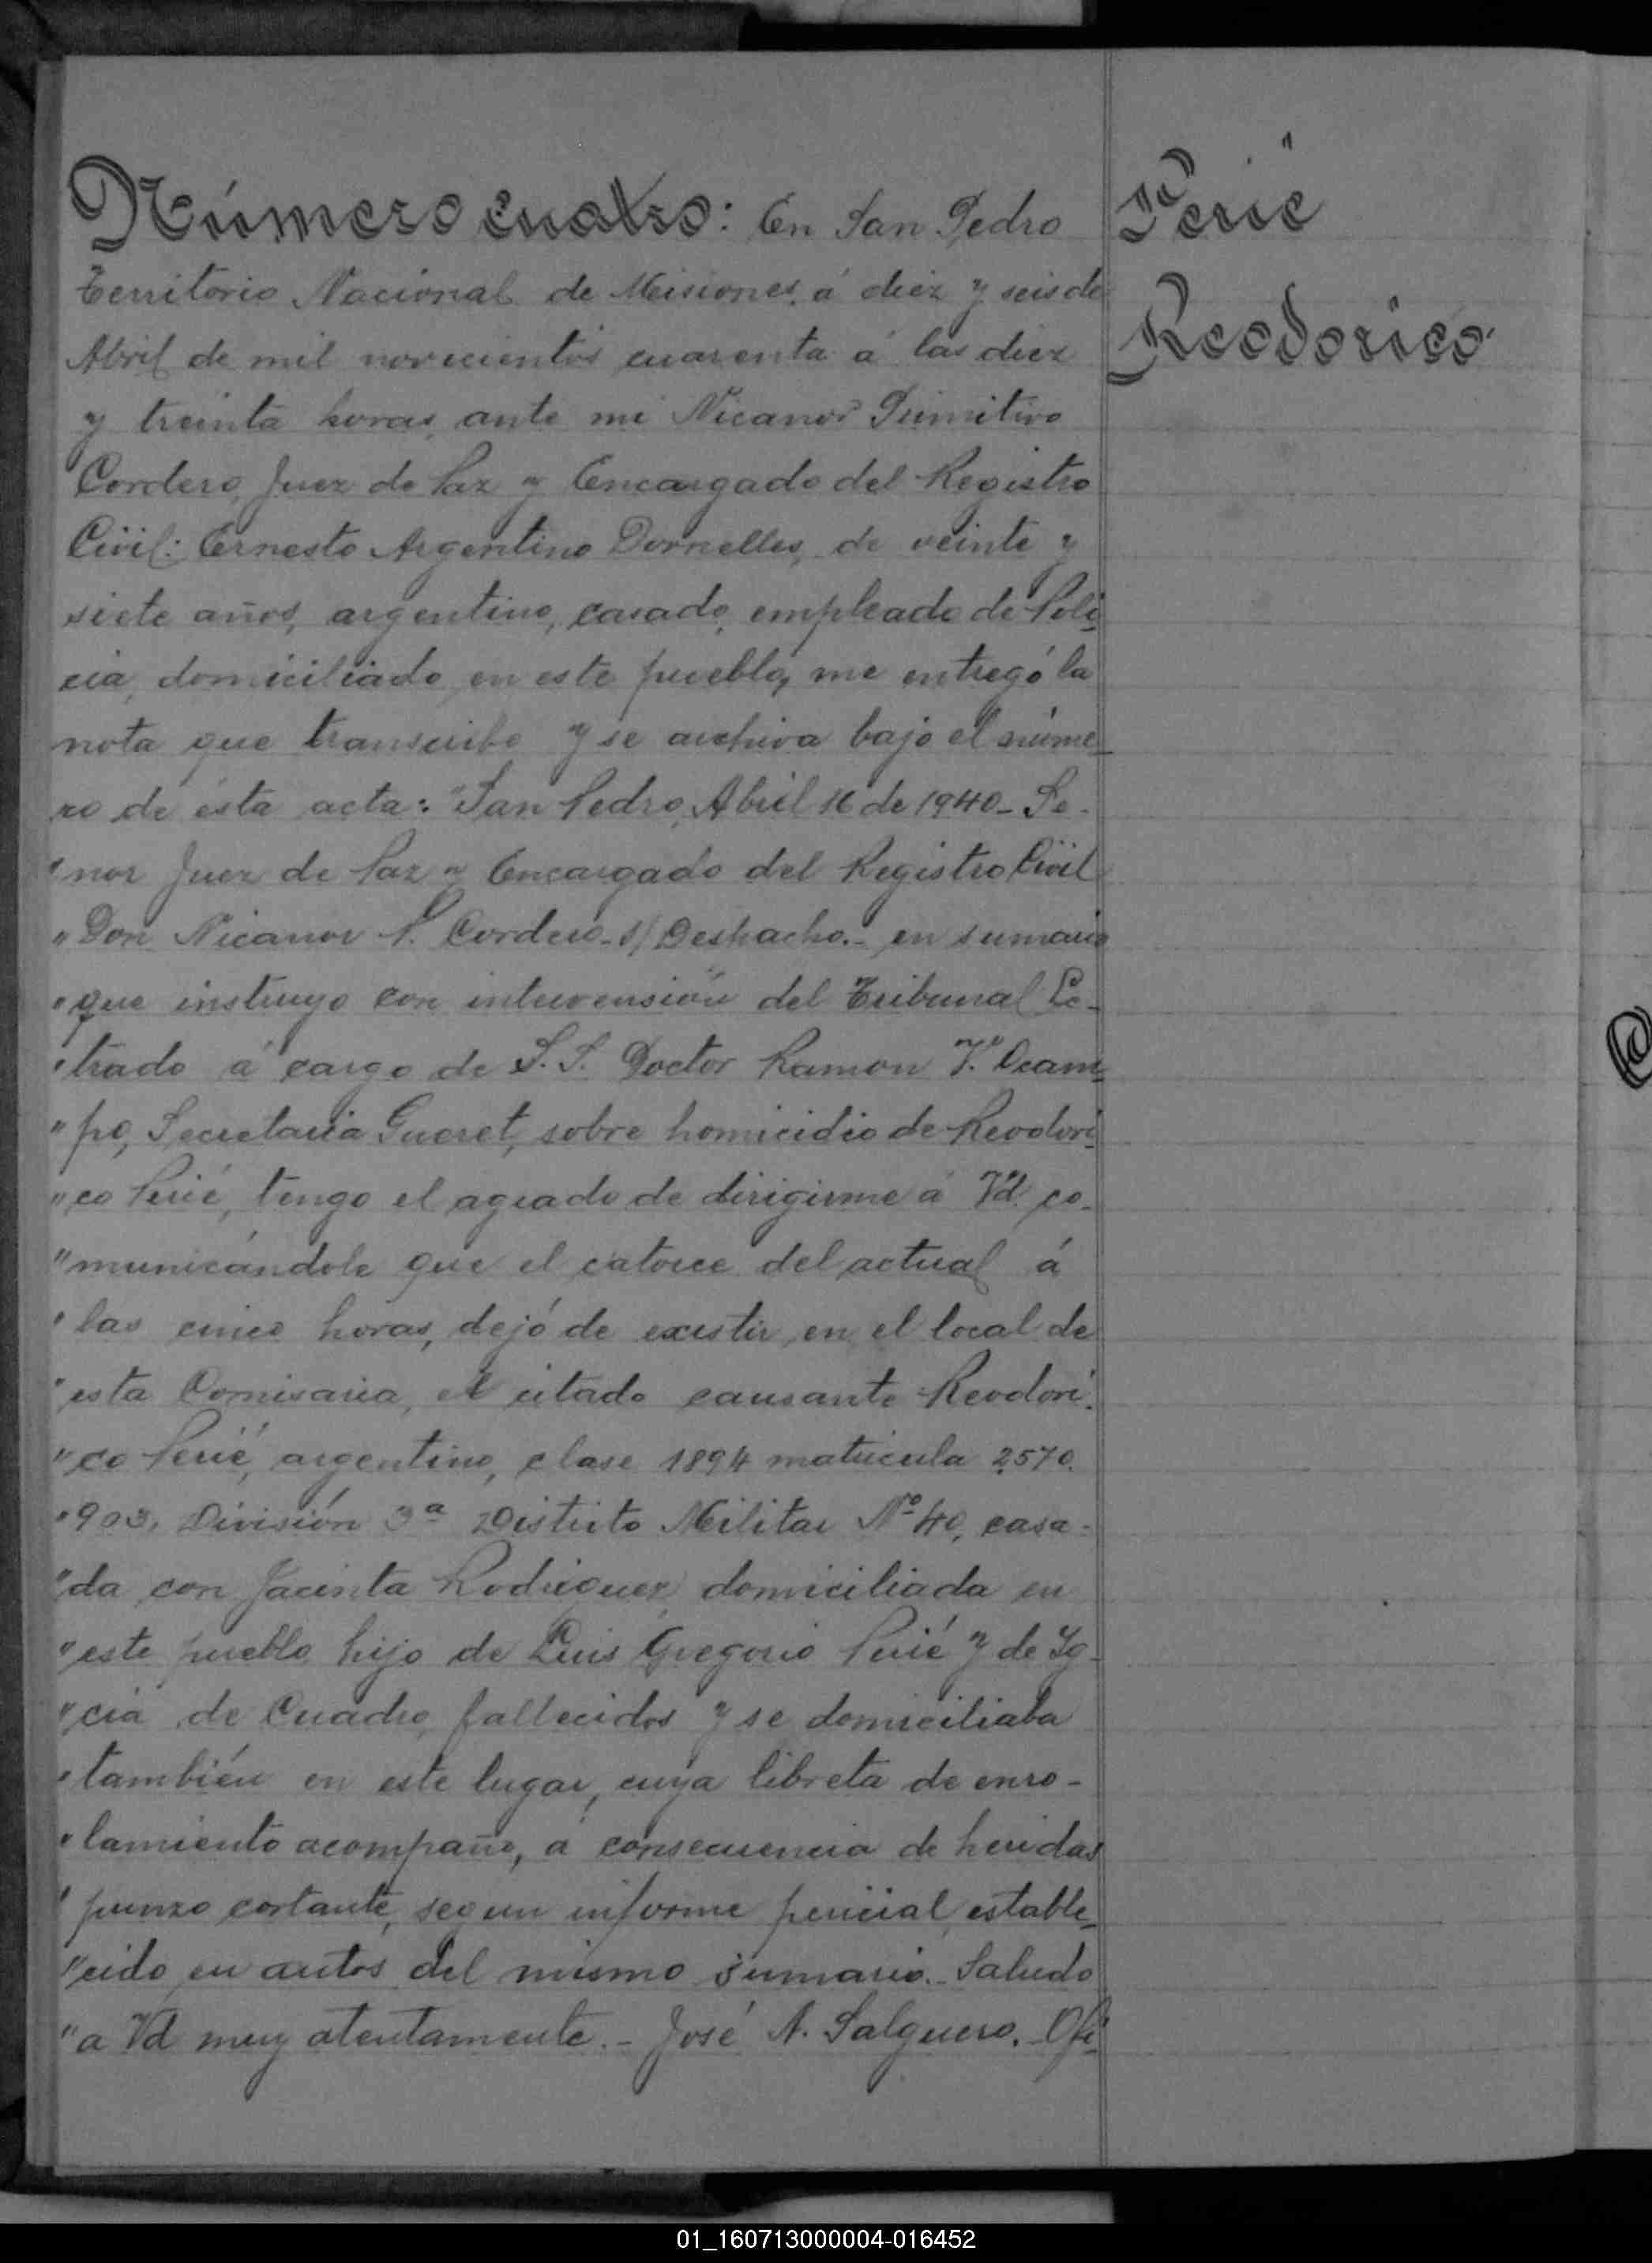 Número cuatro: En San Pedro
Territorio Nacional de Misiones, á diez y seis de
Abril de mil novecientos cuarenta á las diez
y treinta horas, ante mi Nicanor Primitivo
Cordero, Juez de Paz y Encargado del Registro
Civil: Ernesto Argentino Dornelles, de veinte y
siete años, argentino, casado, empleado de Poli-
cia, domiciliado en este pueblo, me entregó la
nota que transcribo y se archiva bajo el núme-
ro de ésta acta: "San Pedro, Abril 16 de 1940_ Se-
"ñor Juez de Paz y Encargado del Registro Civil
"Don Nicanor P. Cordero_ S/Despacho._ en sumario
"que instruyo con intervensión del Tribunal Le-
"trado á cargo de S.S. Doctor Ramon V. Ocam-
"po, Secretaria Gueret, sobre homicidio de Reodori-
"co Perié, tengo el agrado de dirigirme á Vd. co-
"municándole que el catorce del actual á
"las cinco horas, dejó de existir, en el local de
"esta Comisaria, el citado causante Reodori-
"co Perié, argentino, clase 1894 matrícula 2.570.
"903, División 3ª Distrito Militar Nº 40, casa-
"da con Jacinta Rodriguez domiciliada en
"este pueblo, hijo de Luis Gregorio Perié y de
"cia de Cuadro, fallecidos y se domiciliaba
"también en este lugar, cuya libreta de enro-
"lamiento acompaño, á consecuencia de heridas
"punzo cortante, segun informe pericial, estable-
"cido en autos del mismo sumario._ Saludo
"a Vd muy atentamente._ José A. Salguero. Ofi-
Perié
Reodorico
01_160713000004-016452